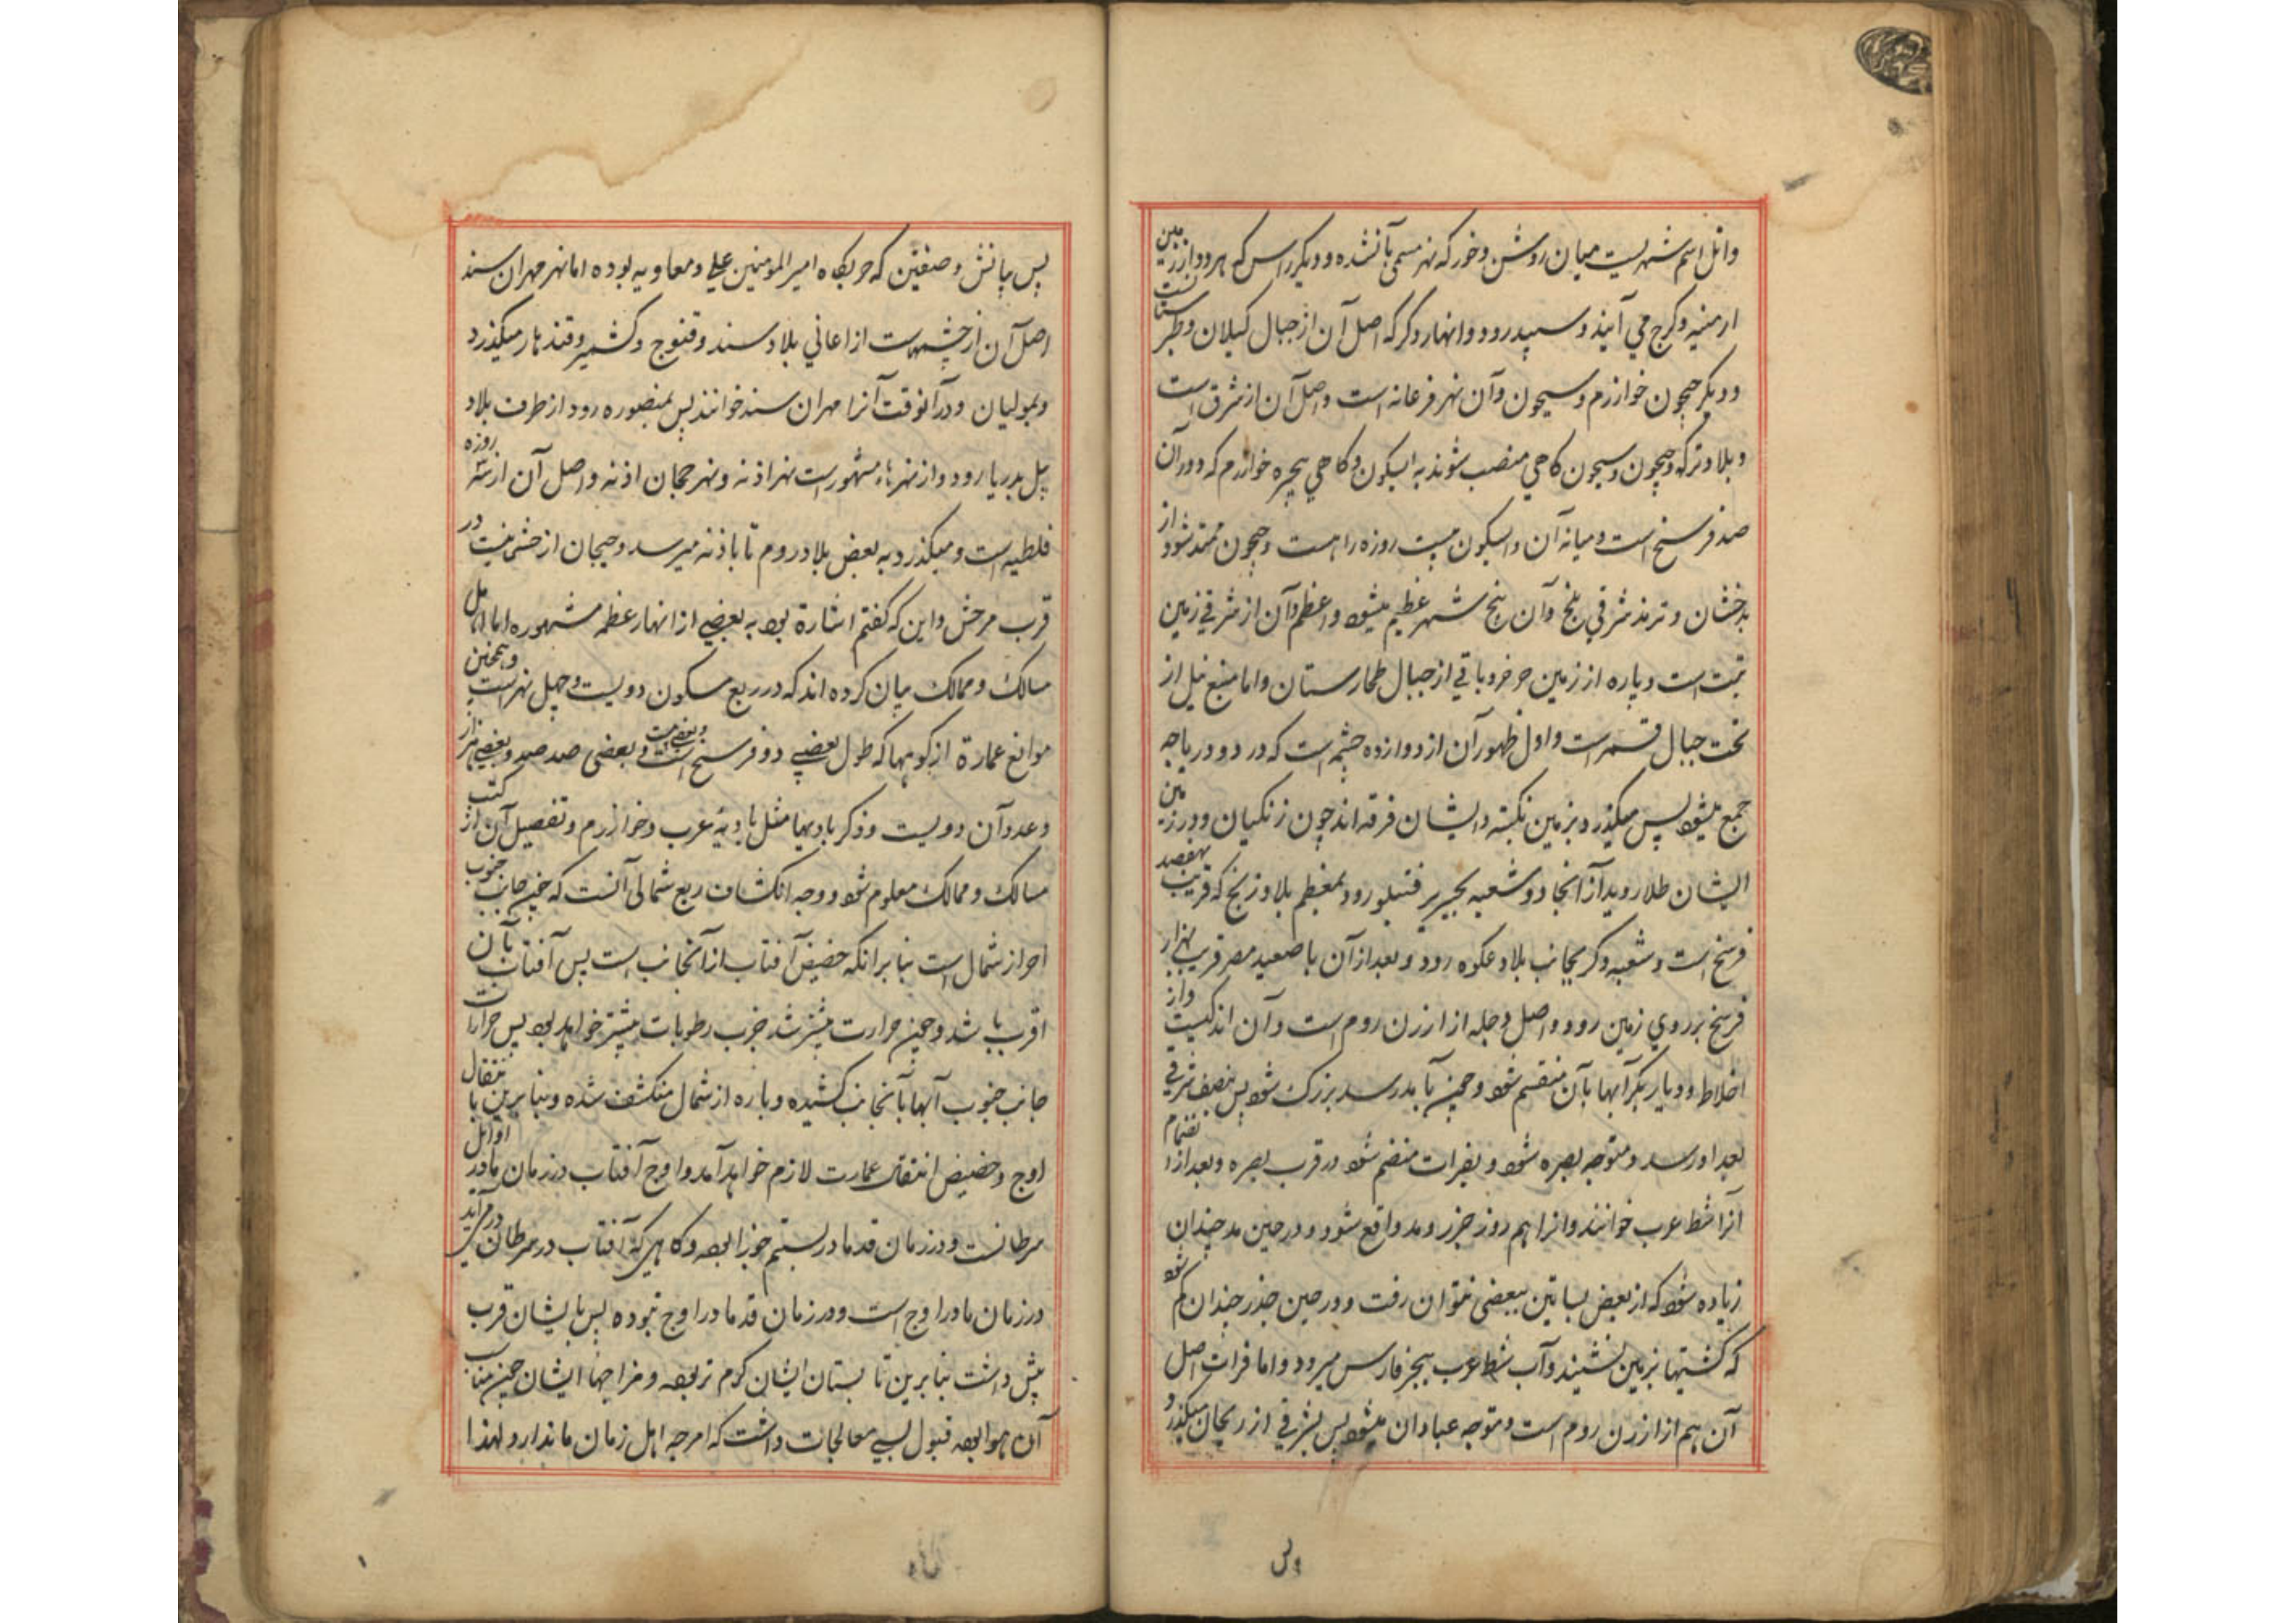 واتل اسم شهریست میان روشن وخور که نهر مسمی بآنشده و دیکر راس که هر دو از زمین
ارمنیه وکرج می آیند و سپیدرود وانهار دکر که اصل آن از جبال کیلان وطبرستانست
ودیکر جیحون خوارزم وسیحون وآن نهر فرغانه است واصل آن از شرق است
وبلاد ترکه وجیحون وسیحون کاهی منصب شوند به ابسکون وکاهی ببحیره خوارزم که دوران
صد فرسخ است ومیانه آن وابسکون بیست روزه راهست وجیحون ممتد شود از
بدخشان وترمذ شرقی بلخ وآن پنج شهر عظیم میشود واعظم آن از شرقی زمین
تبت است وپاره از زمین جرخر وباقی از جبال طخارستان واما منبع نیل از
تحت جبال قمر است واول ظهور آن از دوازده چشمه است که در دو دریاچه
جمع میشود پس میکذرد بزمین وایشان فرقه اند چون زنکیان ودر زمین
ایشان طلا روید از آنجا دو شعبه رود بمعظم بلاد زنج که قریب بهفصد
فرسخ است وشعبه دکر بجانب بلاد علوه رود وبعد از آن با صعید مصر قریب بهزار
فرسخ بر روی زمین رود واصل دجله از ارزن روم است وآن اندکیست واز
اخلاط ودیار بکر آبها بآن منقسم شود وچون بآمد رسد بزرک شود پس بنصف شرقی
بغداد رسد ومتوجه بصره شود وبفرات منضم شود در قرب بصره وبعد از انضمام
آنرا شط عرب خوانند وانرا هر روز جزر ومد واقع شود ودر حین مد چندان
زیاده شود که از بعض بساتین ببعضی نتوان رفت ودر حین جذر چندان کم شود
که کشتیها بزمین نشیند وآب شط عرب ببحر فارس میرود واما فرات اصل
آن هم از ارزن روم است ومتوجه عبادان میشود پس بشرقی ارزنجان میکذرد و
پس
پس وصفین که حربکاه امیر المومنین علی ومعاویه بوده اما نهر مهران سند
اصل آن از چشمهاست از اعالی بلاد سند وقنوج وکشمیر وقندهار میکذرد
وبمولیان ودر آنوقت آنرا مهران سند خوانند پس بمنصوره رود از طرف بلاد
بدریا رود واز نهرهاء مشهور است نهر اذنه ونهر جیحان اذنه واصل آن از سه روزه
ملطیه است ومیکذرد به بعض بلاد روم تا باذنه میرسد وجیحان از چشمه ایست در
قرب مرعش واین که کفتم اشارة بود به بعضی از انهار عظمه مشهوره اما اهل
مسالک وممالک بیان کرده اند که در ربع مسکون دویست وچهل نهر است وهمچنین
موانع عمارة از کوهها که طول بعضی دو فرسخ است وبعضی صد صد وبعضی هزار
وعدد آن دویست وذکر بادیها مثل بادیهٔ عرب وخوارزم وتفصیل آن از کتب
مسالک وممالک معلوم شود ووجه انکشاف ربع شمالی آنست که چون جانب جنوب
احر از شمال است بنابر انکه حضیض آفتاب از آنجانب است پس آفتاب بآن
اقرب باشد وچون حرارت بیشتر شد جذب رطوبات بیشتر خواهد بود پس حرارت
جانب جنوب آبها بآنجانب کشیده وپاره از شمال منکشف شده وبنابرین با انتقال
اوج وحضیض انتقال عمارت لازم خواهد آمد واوج آفتاب در زمان ما در اوایل
سرطانست ودر زمان قدما در بیستم جوزا بوده وکاهی که آفتاب در سرطان درمی آید
در زمان ما در اوج است ودر زمان قدما در اوج نبوده پس بایشان قرب
بیش داشت بنابرین تابستان ایشان کرم تر بوده ومزاجها ایشان چون مناسب
آن هوا بوده قبول بسی معالجات داشت که امزجه اهل زمان ما ندارد ولهذا